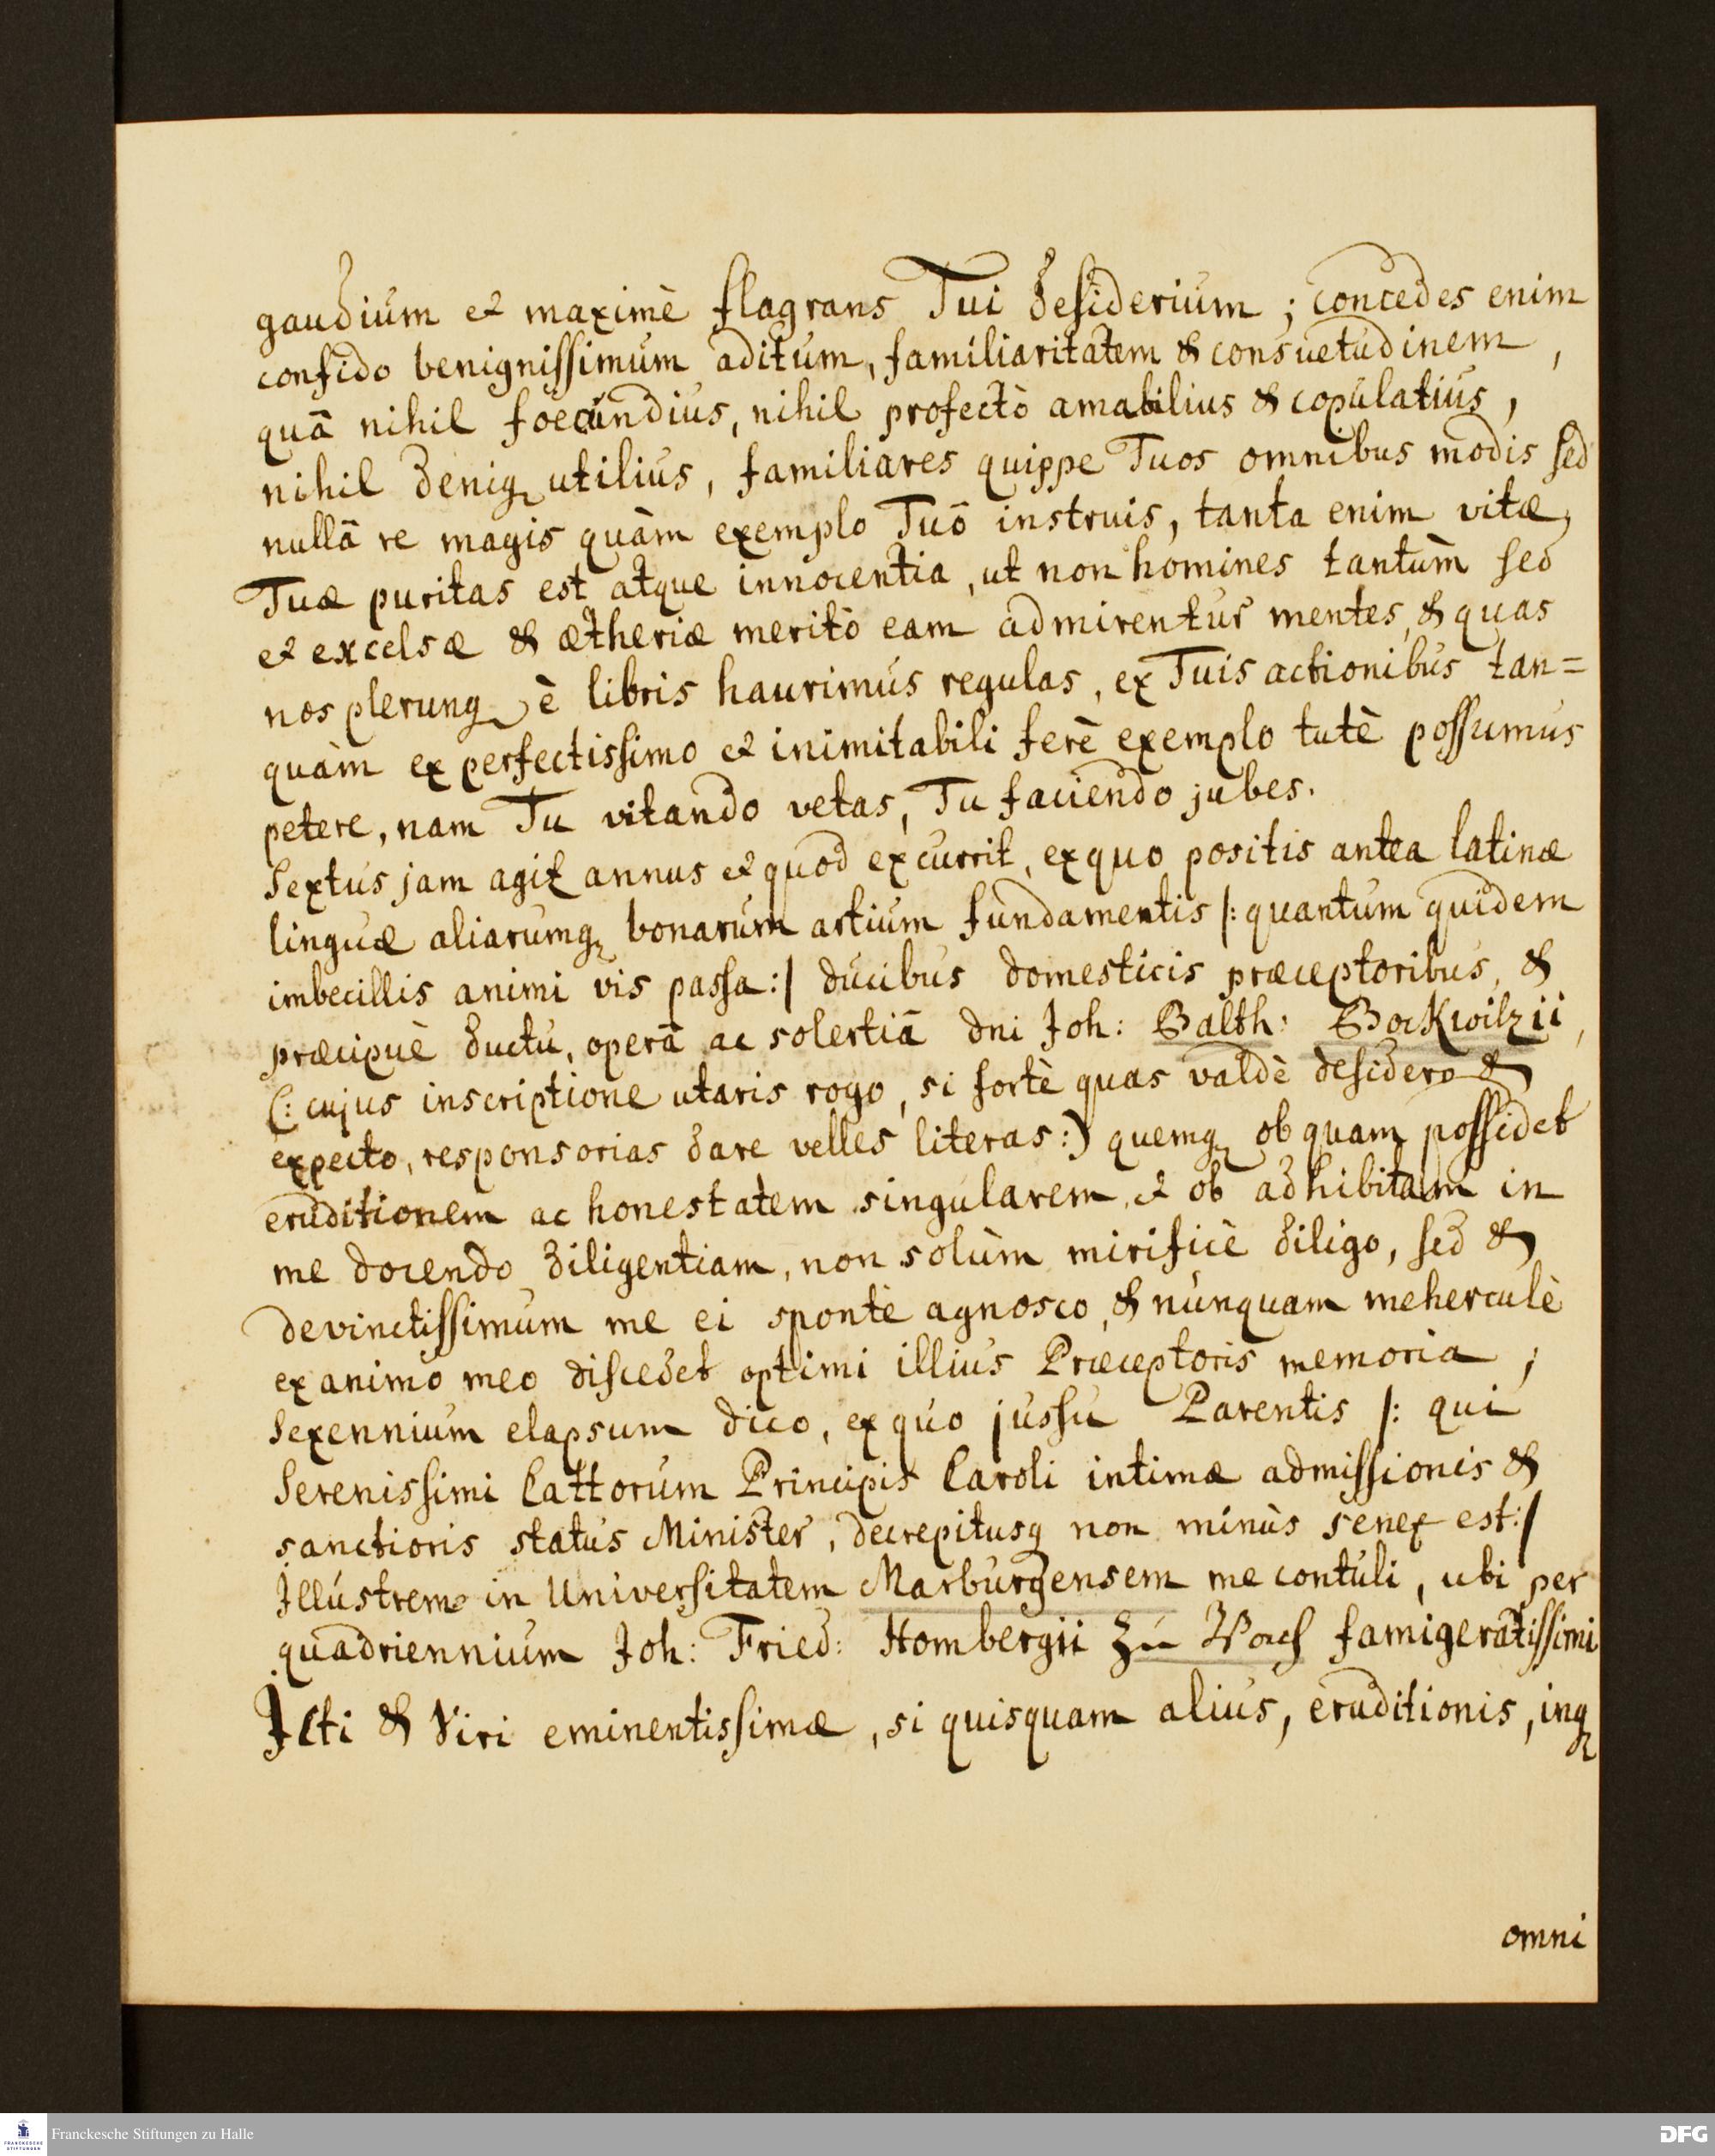 gaudium et maximè flagrans Tui desiderium ; concedes enim
confido benignissimum aditum, familiaritatem & consuetudinem,
quâ nihil foecundius, nihil profectò amabilius & copulatius,
nihil deniq utilius, familiares quippe Tuos omnibus modis sed
nullâ re magis quàm exemplo Tuô instruis, tanta enim vitæ,
Tuæ puritas est atque innocentia, ut non homines tantùm sed
et excelsæ & ætheriæ meritò eam admirentur mentes, & quas
nos plerunq è libris haurimus regulas, ex Tuis actionibus tan=
quàm ex perfectissimo et inimitabili ferè exemplo tutè possumus
petere, nam Tu vitando vetas, Tu faciendo jubes.
Sextus jam agit annus et quod excurrit, ex quo positis antea latinæ
linguæ aliarumq bonarum artium fundamentis /: quantum quidem
imbecillis animi vis passa :/ ducibus domesticis præceptoribus, &
præcipuè ductu, operâ ac solertiâ dni Joh: Balth: Bockwilzii,
(: cujus inscriptione utaris rogo, si fortè quas valdè desidero &
expecto, responsorias dare velles literas :) quemq ob quam possidet
eruditionem ac honestatem singularem, et ob adhibitam in
me docendo diligentiam, non solùm mirificè diligo, sed &
devinctissimum me ei spontè agnosco, & nunquam meherculè
ex animo meo discedet optimi illius Præceptoris memoria ;
Sexennium elapsum dico, ex quo jussu Parentis /: qui
Serenissimi Cattorum Principis Caroli intimæ admissionis &
sanctioris status Minister, decrepitusq non minùs senex est :/
Illustrem in Universitatem Marburgensem me contuli, ubi per
quadriennium Joh: Fried: Hombergii zu Vach famigeratissimi
Icti & Viri eminentissimæ, si quisquam alius, eruditionis, inq
omni
Franckesche Stiftungen zu Halle
FRANCKESCHE STIFTUNGEN
DFG